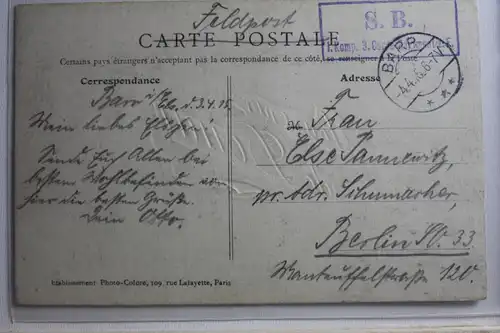 Feldpost
S. B.
CARTE POSTALE
Certains pays étrangers n'acceptent pas la correspondance de ce côté, se renseigner à la Poste
Correspondance
Adresse
BARR
-4.4.15.6-7N
Barr i/Els. d. 3.4.15.
Mein liebes
Sende Euch Allen bei
bestem Wohlbefinden von
hier die besten Grüße.
Dein Otto.
Frau
Else Pannewitz,
pr. Adr. Schumacher,
Berlin SO. 33
Manteuffelstraße 120.
Etablissement Photo-Colore, 109, rue Lafayette, Paris